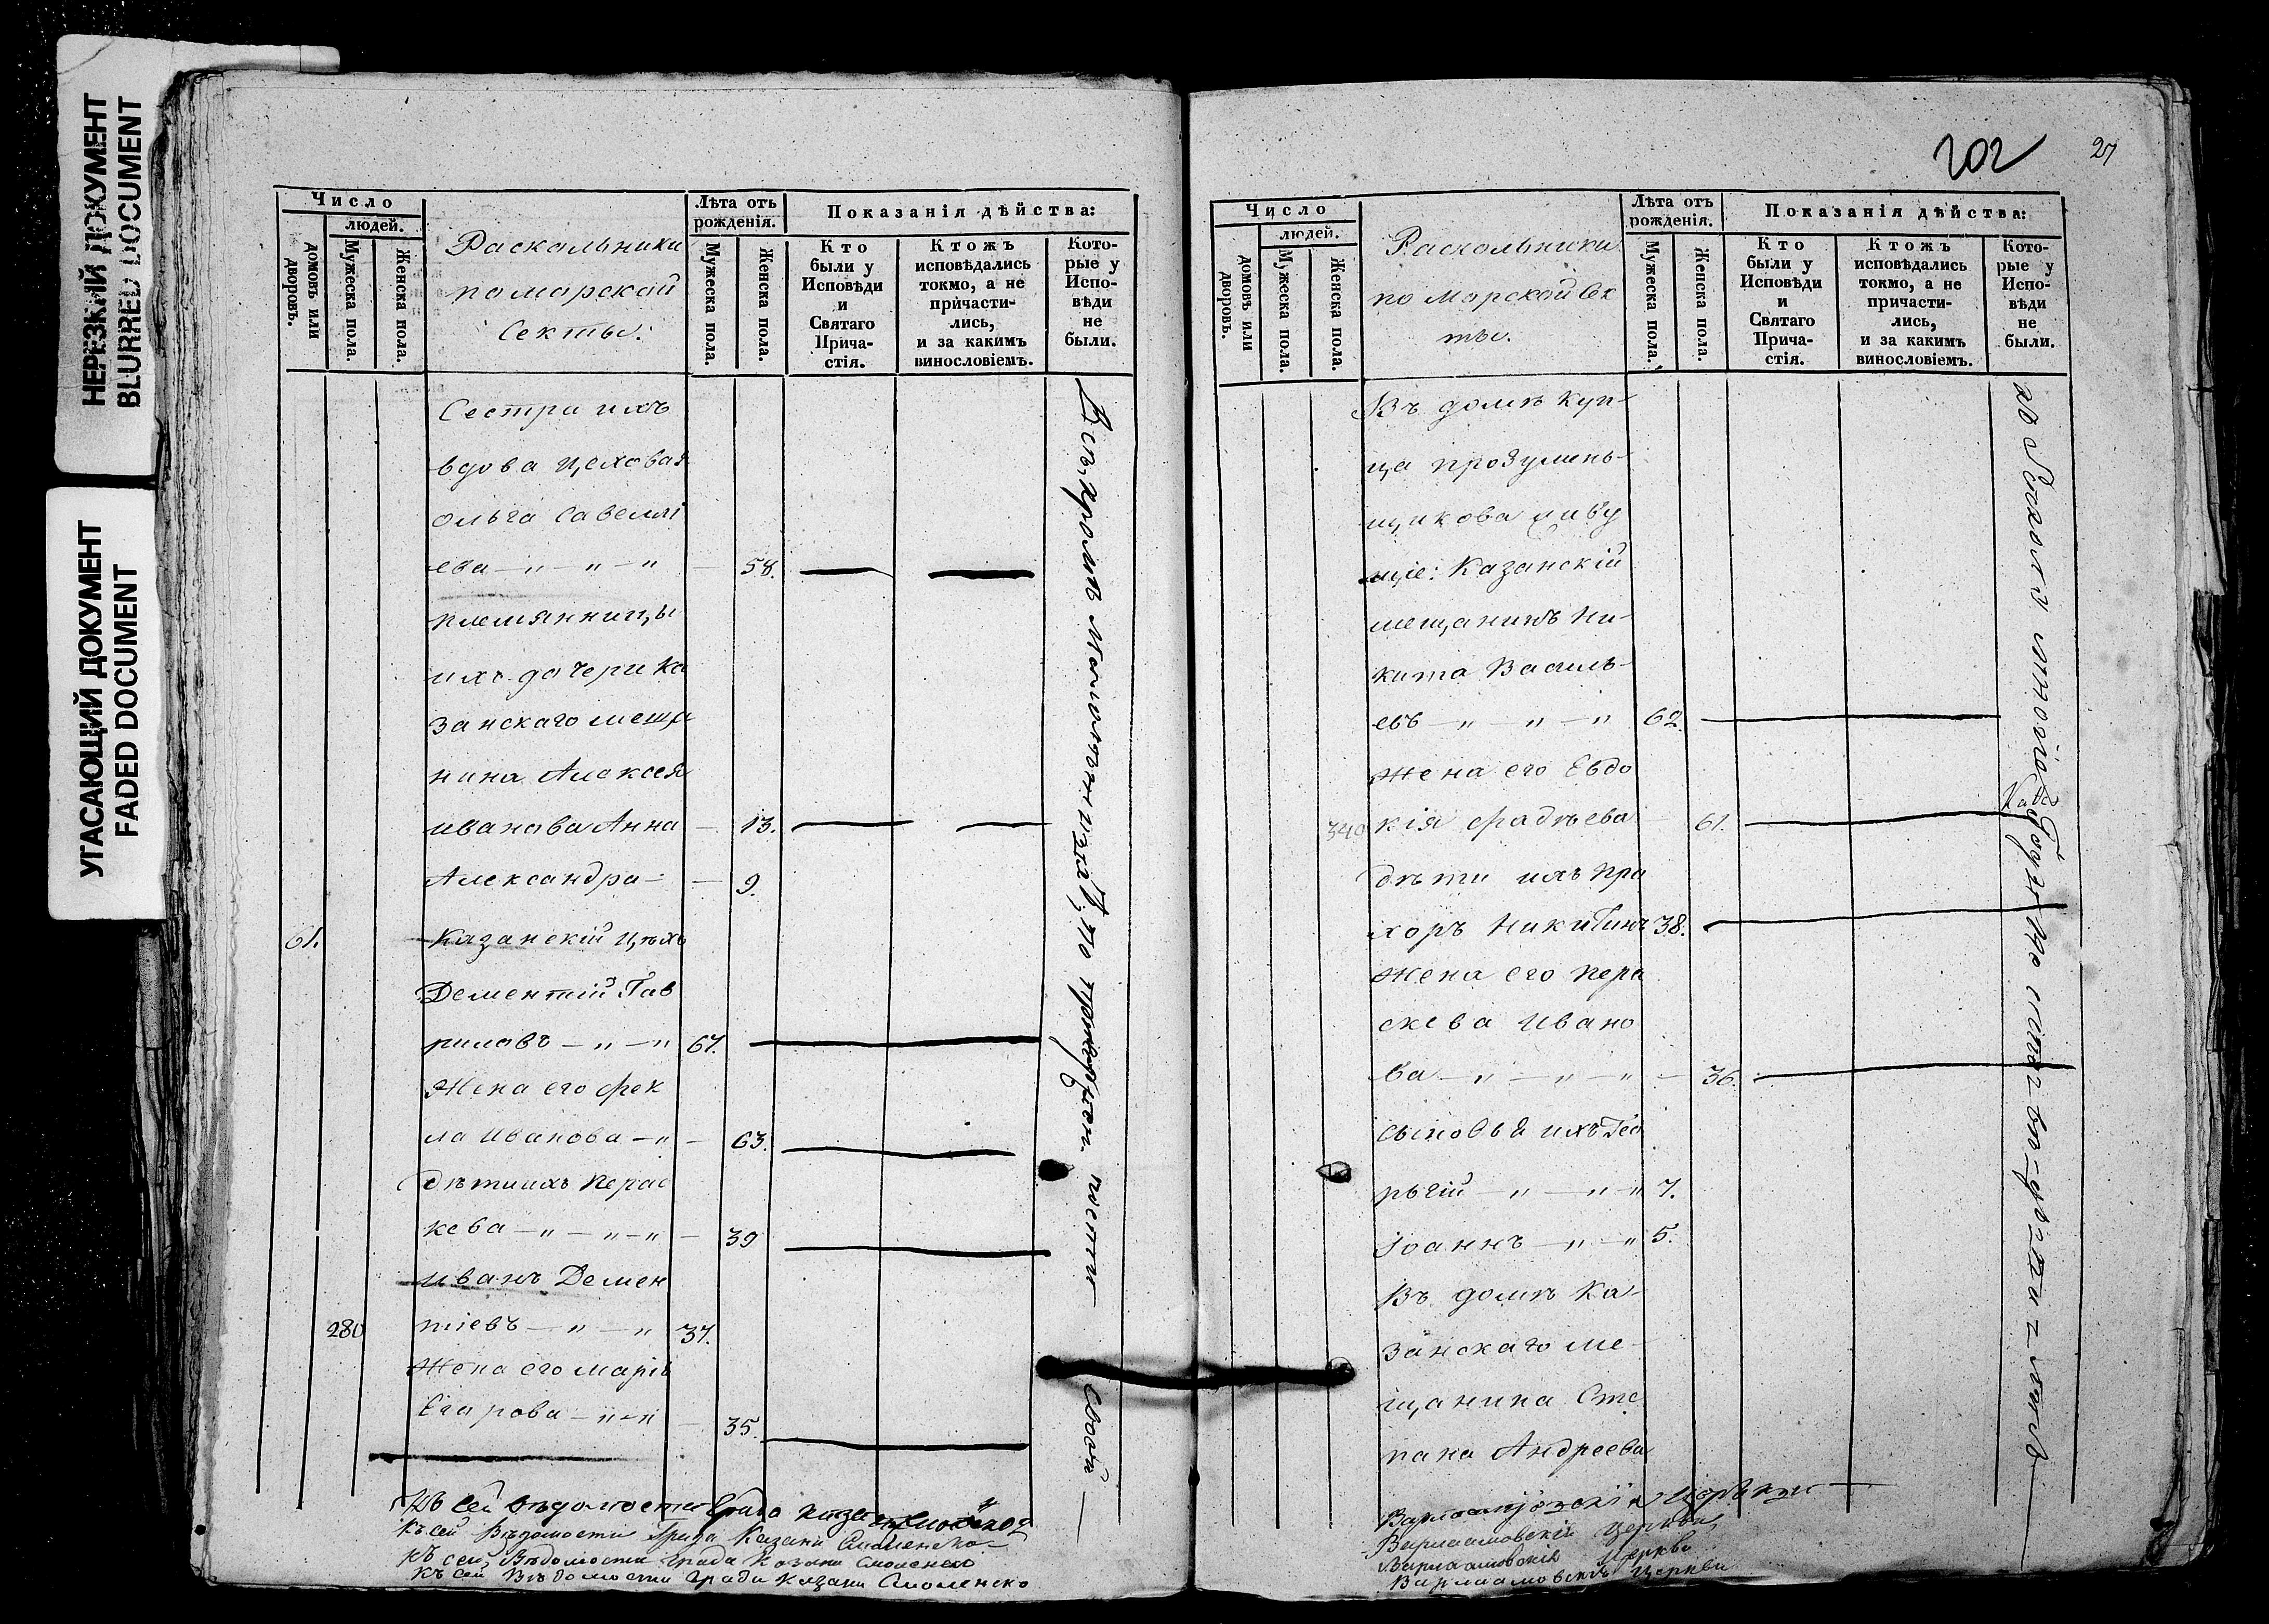 НЕРЕЗКИЙ ДОКУМЕНТ
BLURRED DOCUMENT
УГАСАЮЩИЙ ДОКУМЕНТ
FADED DOCUMENT
Число
людей.
домовъ или дворовъ.
Мужеска пола.
Женска пола.
Раскольники
поморской
Секты:
Лѣта отъ рожденія.
Мужеска пола.
Женска пола.
Показанія дѣйства:
Кто были у Исповѣди и Святаго Прича-стія.
Ктожъ исповѣдались токмо, а не причасти-лись, и за какимъ винословіемъ.
Кото-рые у Испо-вѣди не были.
Сестра ихъ
вдова цеховая
Ольга Савельі
ева — „ — „ — „ — 58.
племянницы
ихъ дочери Ка
занскаго меща
нина Алексея
Иванова Анна — 13.
Александра — — 9.
61. Казанскій цѣхо
Дементій Гав
риловъ — „ — „ 67.
Жена его Фек
ла Иванова — „ — 63.
дѣти ихъ Парас
кева — „ — „ — „ — 39
Иванъ Демен
280 тіевъ — „ — „ 37.
Жена его Марія
Егорова — „ — „ — 35.
Всѣ, кромѣ
свой
Къ сей вѣдомости Града Казани Смоленско
Къ сей Вѣдомости Града Казани Смоленско
Къ сей Вѣдомости Града Казани Смоленско
Къ сей Вѣдомости Града Казани Смоленско
202
27
Число
людей.
домовъ или дворовъ.
Мужеска пола.
Женска пола.
Раскольники
поморской Сек
ты.
Лѣта отъ рожденія.
Мужеска пола.
Женска пола.
Показанія дѣйства:
Кто были у Исповѣди и Святаго Прича-стія.
Ктожъ исповѣдались токмо, а не причасти-лись, и за какимъ винословіемъ.
Кото-рые у Испо-вѣди не были.
Въ домѣ куп-
ца Прозумень-
щикова живу
щіе: Казанскій
мещанинъ Ни-
кита Василь-
евъ — „ — „ — „ 62.
Жена его Евдо
340 кія Фадѣева — 61.
дѣти ихъ Про
хоръ Никитинъ 38.
Жена его Пара
скева Ивано
ва — „ — „ — „ — 36.
сыновья ихъ Гео
ргій — „ — „ — „ 7.
Іоаннъ — „ — „ 5.
Въ домѣ Ка-
занскаго ме-
щанина Сте
пана Андреева
Варлаамовскія Церкви
Варлаамовскія Церкви
Варлаамовскія Церкви
Варлаамовскія Церкви